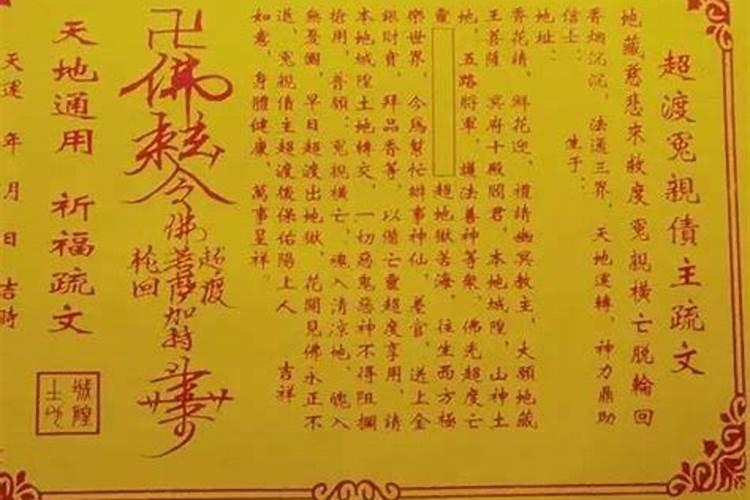 超渡冤親債主疏文
地藏慈悲來救度冤親橫亡脫輪回
香烟沉沉，法通三界，天地運轉，神力鼎助
信士： 生于：
地址：
香花請，鮮花迎，禮請幽冥教主，大願地藏
王菩薩 冥府十殿閻君，本地城隍，山神土
地，五路將軍，護法善神等衆，佛光超度亡
靈 超地獄苦海，往生西方極
樂世界，今爲幫忙辦事神仙，差官，送上金
銀財寶，拜品香等，以備亡靈超度享用，請
本地城隍土地轉交，一切惡鬼惡神不得阻攔
搶用，普願：冤親橫亡，魂入清凉地，魄入
無憂園，早日超渡出地獄，花開見佛永正不
退，冤親債主超渡後保佑陽上人 吉祥
如意，身體健康，萬事呈祥。
卍
佛
來
令
佛菩薩加持
超渡
輪回
天地通用 祈福疏文
城隍
土地
天運 年 月 日 吉時